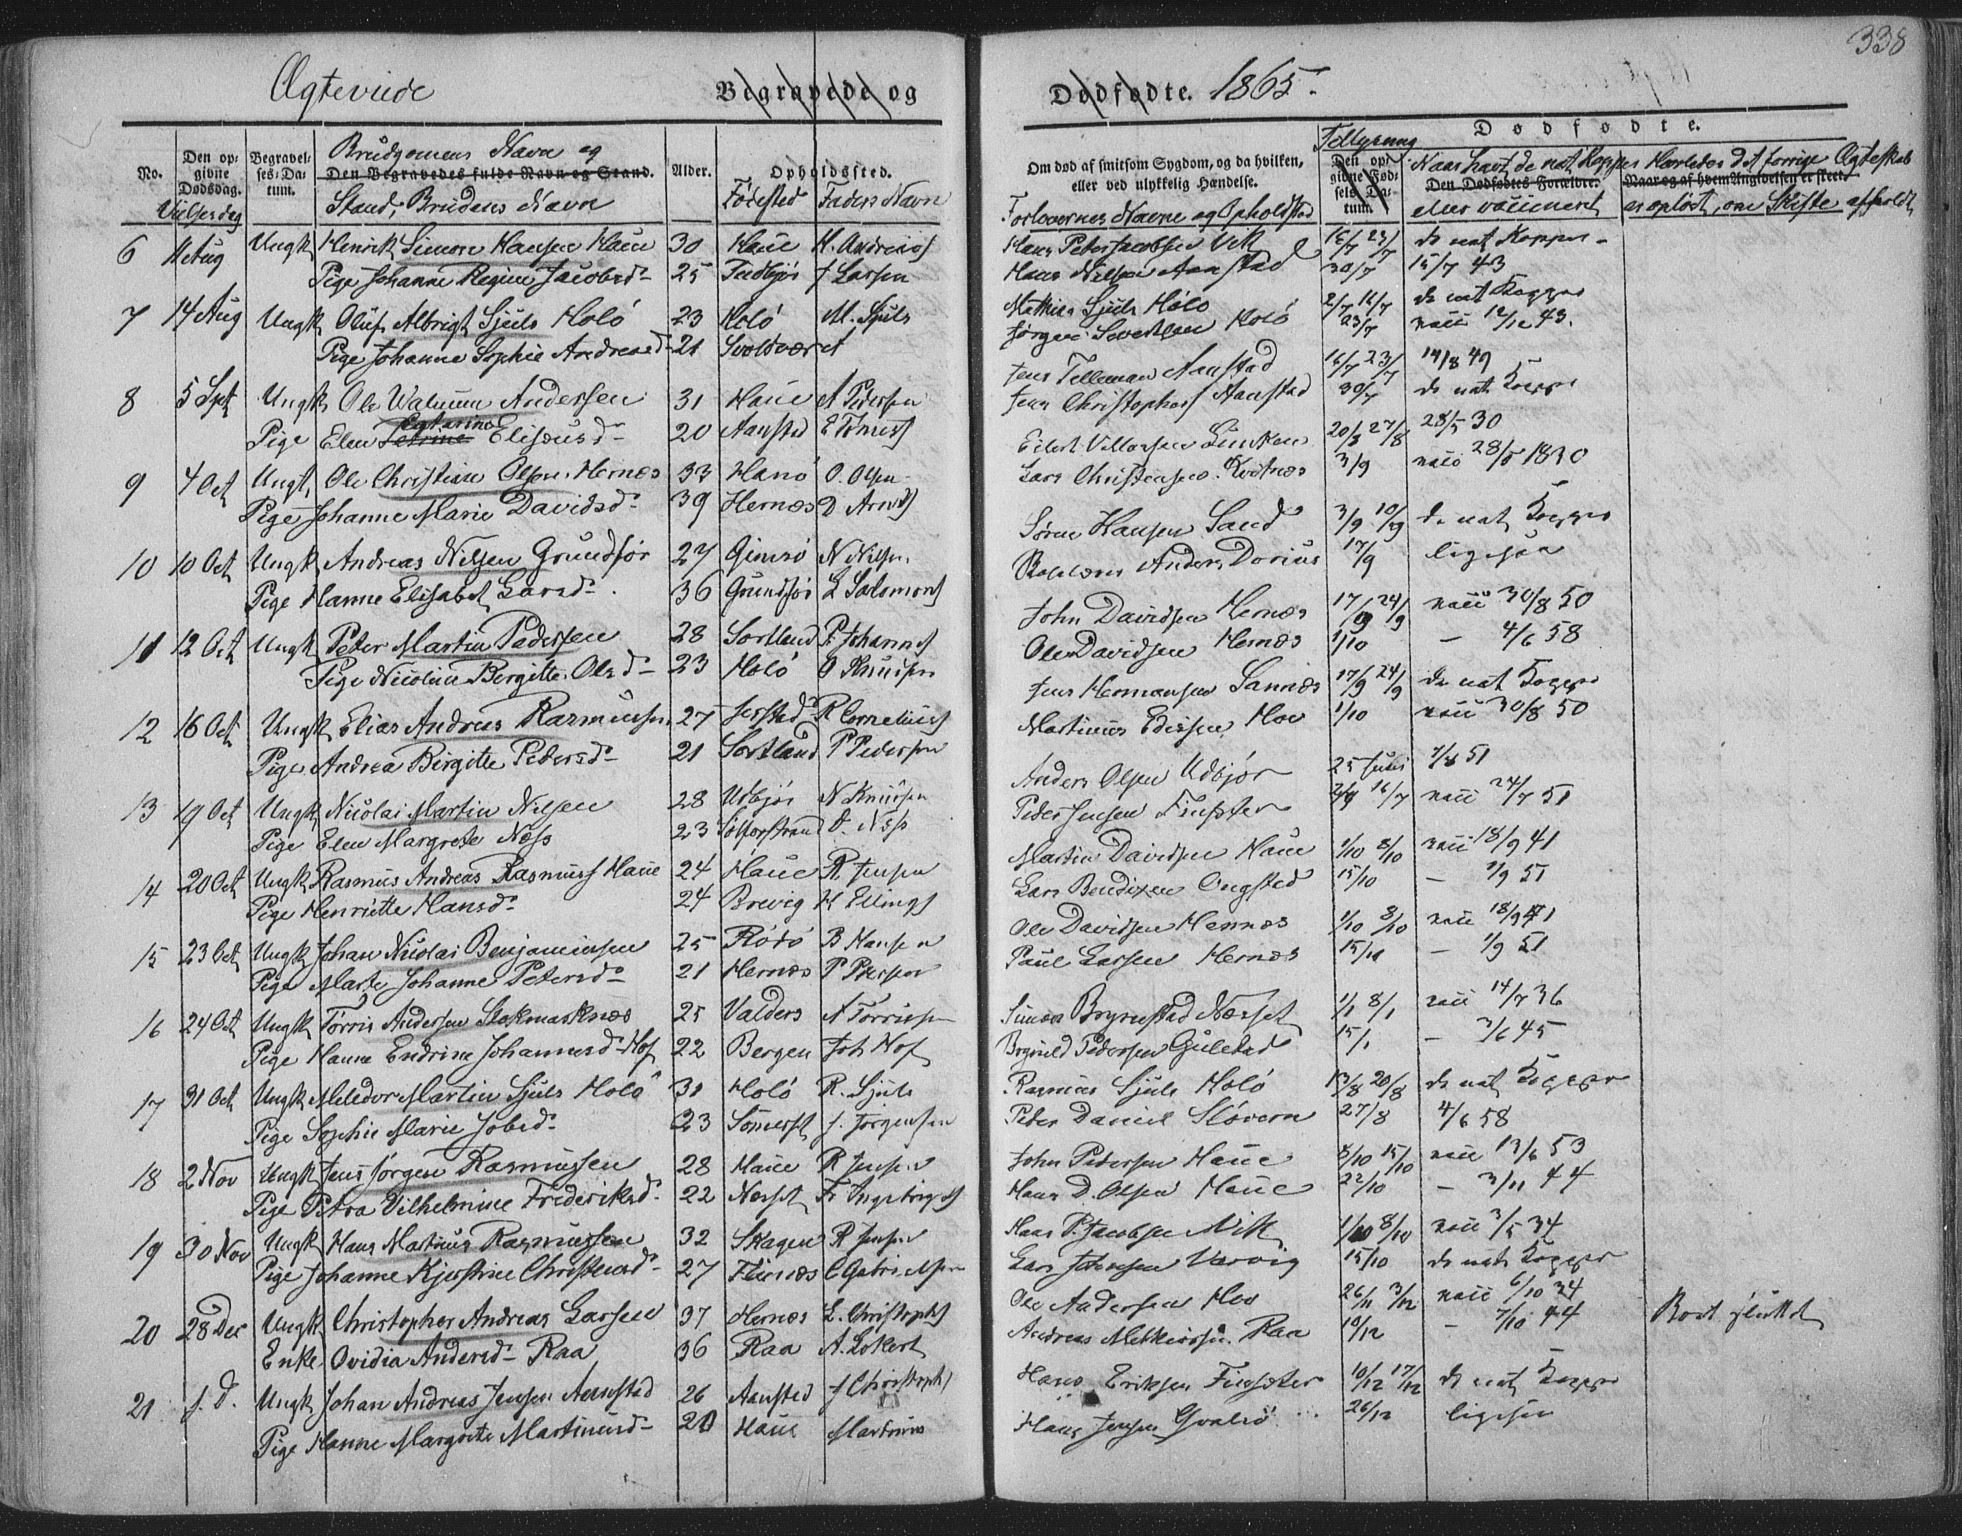 338
Ægteviede Begravede og Dødfødte. 1865.
No. Den opgivne Dødsdag. Begravelses-Datum. Den Begravedes fulde Navn og Stand. Alder. Opholdssted.
Vielsesdag Brudgomens Navn og Stand, Brudens Navn Fødested Faders Navn
Om død af smitsom Sygdom, og da hvilken, eller ved ulykkelig Hændelse. Den opgivne Fødsels-Datum. Dødfødte. Den Dødfødtes Forældre. Naar og af hvem Angivelsen er skeet.
Forlovernes Navne og Opholdsted Tellysning Naar havt de nat Kopper eller vaccineret Hvorledes det forrige Ægteskab er opløst, om Skifte afholdt
6 11 Aug Ungk Henrik Simon Hansen Haue 30 Haue H. Andreas Hans Peter Jacobsen Vik 16/7 23/7 de nat Kopper
Pige Johanne Regine Jacobsd 25 J Larsen Hans Nilsen Aanstad 30/7 15/7 43
7 14 Aug Ungk Oluf Albrigt Sjuls Holö 23 Holö M. Sjuls Mathias Sjuls Holö 2/7 16/7 de nat Kopper
Pige Johanne Sophie Andreasd 21 Svoldvær Jörgen Sivertsen Holö 23/7 vacc 12/12 43.
8 5 Spt Ungk Ole Walnum Andersen 31 Haue A Pedersen Jens Telleman Aanstad 16/7 23/7 14/8 49
Pige Elen Elisæusd 20 Aanstad E Tönnes Jens Christophers Aanstad 30/7 de nat Kopper
Eilert 20/8 27/8 28/5 30
9 4 Oct Ungk Ole Christian Olsen Hernæs 33 Hanö O. Olsen Lars Christensen Kvitnæs 3/9 vacc 28/5 1830
Pige Johanne Marie Davidsd 39 Hernæs D Arnts
10 10 Oct Ungk Andreas Nilsen Grundför 27 Gimsö N Nilsen Sören Hansen Sand 3/9 10/9 de nat Kopper
Pige Hanne Elisabet Larsd 36 Grundför L Salomons Anders Dorius 17/9 ligesaa
11 12 Oct Ungk Peter Martin Pedersen 28 Sortland P Johannes John Davidsen Hernæs 17/9 24/9 vacc 30/8 50
Pige Nicoline Bergitte Olsd 23 Holö O Knudsen Ole Davidsen Hernæs 1/10 — 4/6 58
12 16 Oct Ungk Elias Andreas Rasmussen 27 Jerstad R Cornelius Jens Hermansen Sannæs 17/9 24/9 de nat Kopper
Pige Andrea Birgitte Petersd 21 Sortland P Pedersen Martinus Edissen Hov 1/10 vacc 30/8 50
13 19 Oct Ungk Nicolai Martin Nilsen 28 Udbjör N Knudsen Anders Olsen Udbjör 25 Juni 7/8 51
Pige Elen Margrete Næss 23 O. Næss Peder Jensen Finsæter 2/7 16/7 vacc 24/7 51
14 20 Oct Ungk Rasmus Andreas Rasmuss Haue 24 Haue R. Jensen Martin Davidsen Haue 1/10 8/10 vacc 18/9 41
Pige Henriette Hansd 24 Brevig H Ellings Lars Bendixen Ongstad 15/10 — 1/9 51
15 23 Oct Ungk Johan Nicolai Benjaminsen 25 Rödö B Hansen Ole Davidsen Hernæs 1/10 8/10 vacc 18/9 41
Pige Marte Johanne Petersd 21 Hernæs P Petersen Paul Larsen Hernæs 15/10 — 1/9 51
16 24 Oct Ungk Torris Andersen Stokmarknæs 25 Valders A Torrisen Simon Brynestad Nærset 1/1 8/1 vacc 14/7 36
Pige Hanne Endrine Johannesd Hof 22 Bergen Joh Hof Pedersen Gulstad 15/1 — 3/6 45
17 31 Oct Ungk Meledor Martin Sjuls Holö 31 Holö R. Sjuls Rasmus Sjuls Holö 13/8 20/8 de nat Kopper
Pige Sophie Marie Jobsd 23 Sömerset J. Jörgensen Peter Daniel Slövern 27/8 4/6 58
18 2 Nov Ungk Jens Jörgen Rasmussen 28 Haue R Jensen John Pedersen Haue 8/10 15/10 vacc 13/6 53
Pige Petra Vilhelmine Frederiksd 22 Nærset Fr Ingebrigts Hans D. Olsen Haue 22/10 — 3/11 44
19 30 Nov Ungk Hans Martinus Rasmussen 32 Skagen R Jensen Hans P. Jacobsen Vik 1/10 8/10 vacc 3/5 34
Pige Johanne Kjerstine Christensd 27 Flenæs C Gabrielsen Lars Johnsen Vervig 15/10 de nat Kopper
20 28 Dec Ungk Christopher Andreas Larsen 37 Hernæs L. Christophs Ole Andersen Hov 26/11 3/12 vacc 6/10 34
Enke Ovidia Andersd Raa 36 Raa A. Lokert Andreas Melkiorsen Raa 10/12 — 7/10 44 Bort flyttet
21 s. D. Ungk Johan Andreas Jensen Aanstad 26 Aanstad J Christophs Hans Eriksen Finsæter 10/12 17/12 de nat Kopper
Pige Hanne Margrete Martinusd 20 Haue Martinus Hans Jensen Qvalsö 26/12 ligesaa